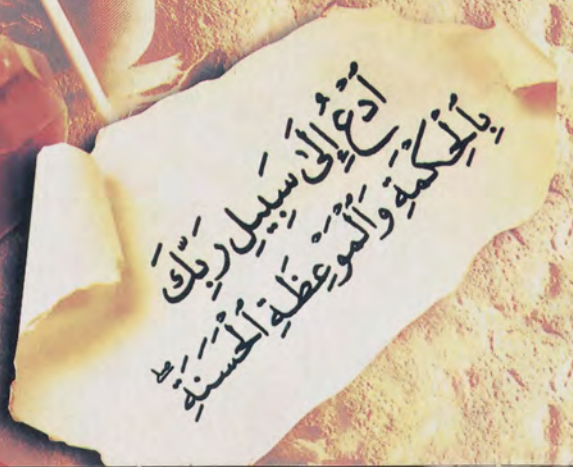 ٱدْعُ إِلَىٰ سَبِيلِ رَبِّكَ
بِٱلْحِكْمَةِ وَٱلْمَوْعِظَةِ ٱلْحَسَنَةِۖ